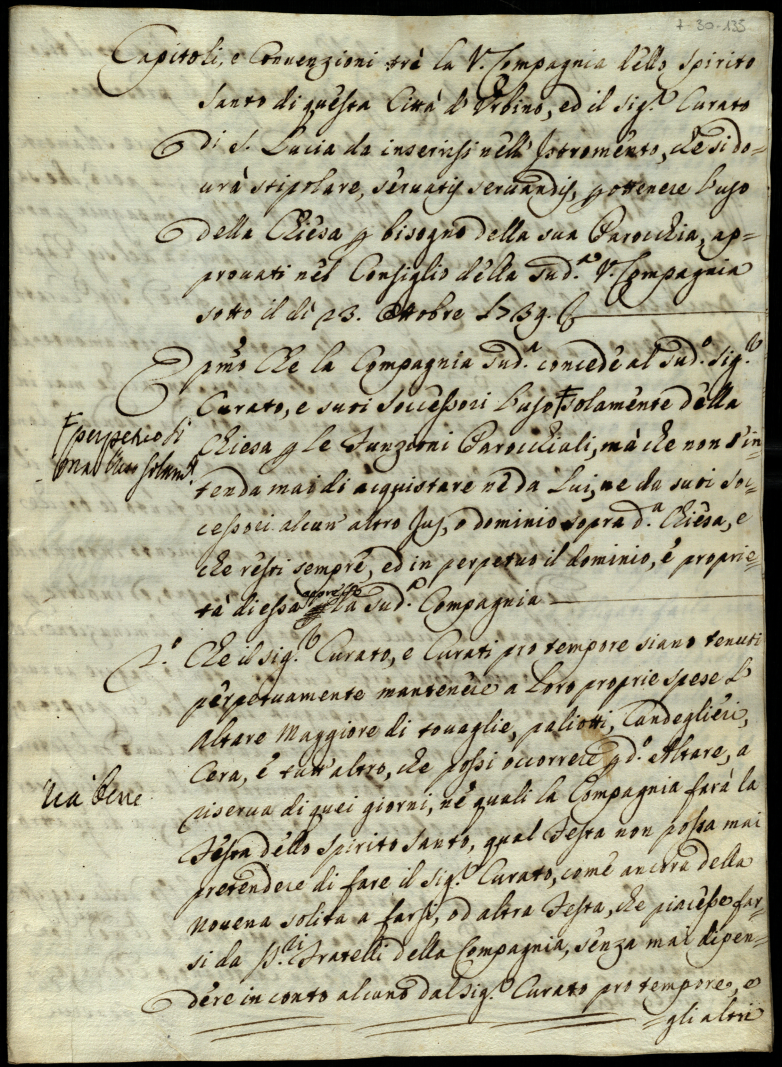 7-30-135
Capitoli, e Convenzioni trà la V. Compagnia dello Spirito
Santo di questa Città d'Urbino, ed il Sig.r Curato
di S. Lucia da inserirsi nell' Jstromento, che si do=
urà stipolare, servatis servandis, p ottenere l'uso
della Chiesa p bisogno della sua Parocchia, ap=
prouati nel Consiglio della sud.a V. Compagnia
sotto il dì 23. Ottobre 1739.
E p.mo Che la Compagnia sud.a concede al sud.o Sig.r
Curato, e suoi Successori l'uso solamente della
Chiesa p le Funzioni Parocchiali, mà che non s'in=
tenda mai di acquistare nè da Lui, ne da suoi Suc=
cessori alcun' altro Jus, o dominio sopra d.a Chiesa, e
che resti sempre, ed in perpetuo il dominio, e proprie=
tà di essa appresso la sud.a Compagnia
2.o Che il Sig.r Curato, e Curati pro tempore siano tenuti
perpetuamente mantenere a loro proprie spese l'
Altare Maggiore di touaglie, paliotti, Candeglieri,
Cera, e tutt'altro, che possi occorrere p d.o Altare, a
riserua di quei giorni, ne quali la Compagnia farà la
Festa dello Spirito Santo, qual Festa non possa mai
pretendere di fare il Sig.r Curato, come ancora della
Nouena solita a farsi, od altra Festa, che piacesse far=
si da Fratelli della Compagnia, senza mai dipen=
dere in conto alcuno dal Sig.r Curato pro tempore, e
=gli altri
perpetuo
Và bene